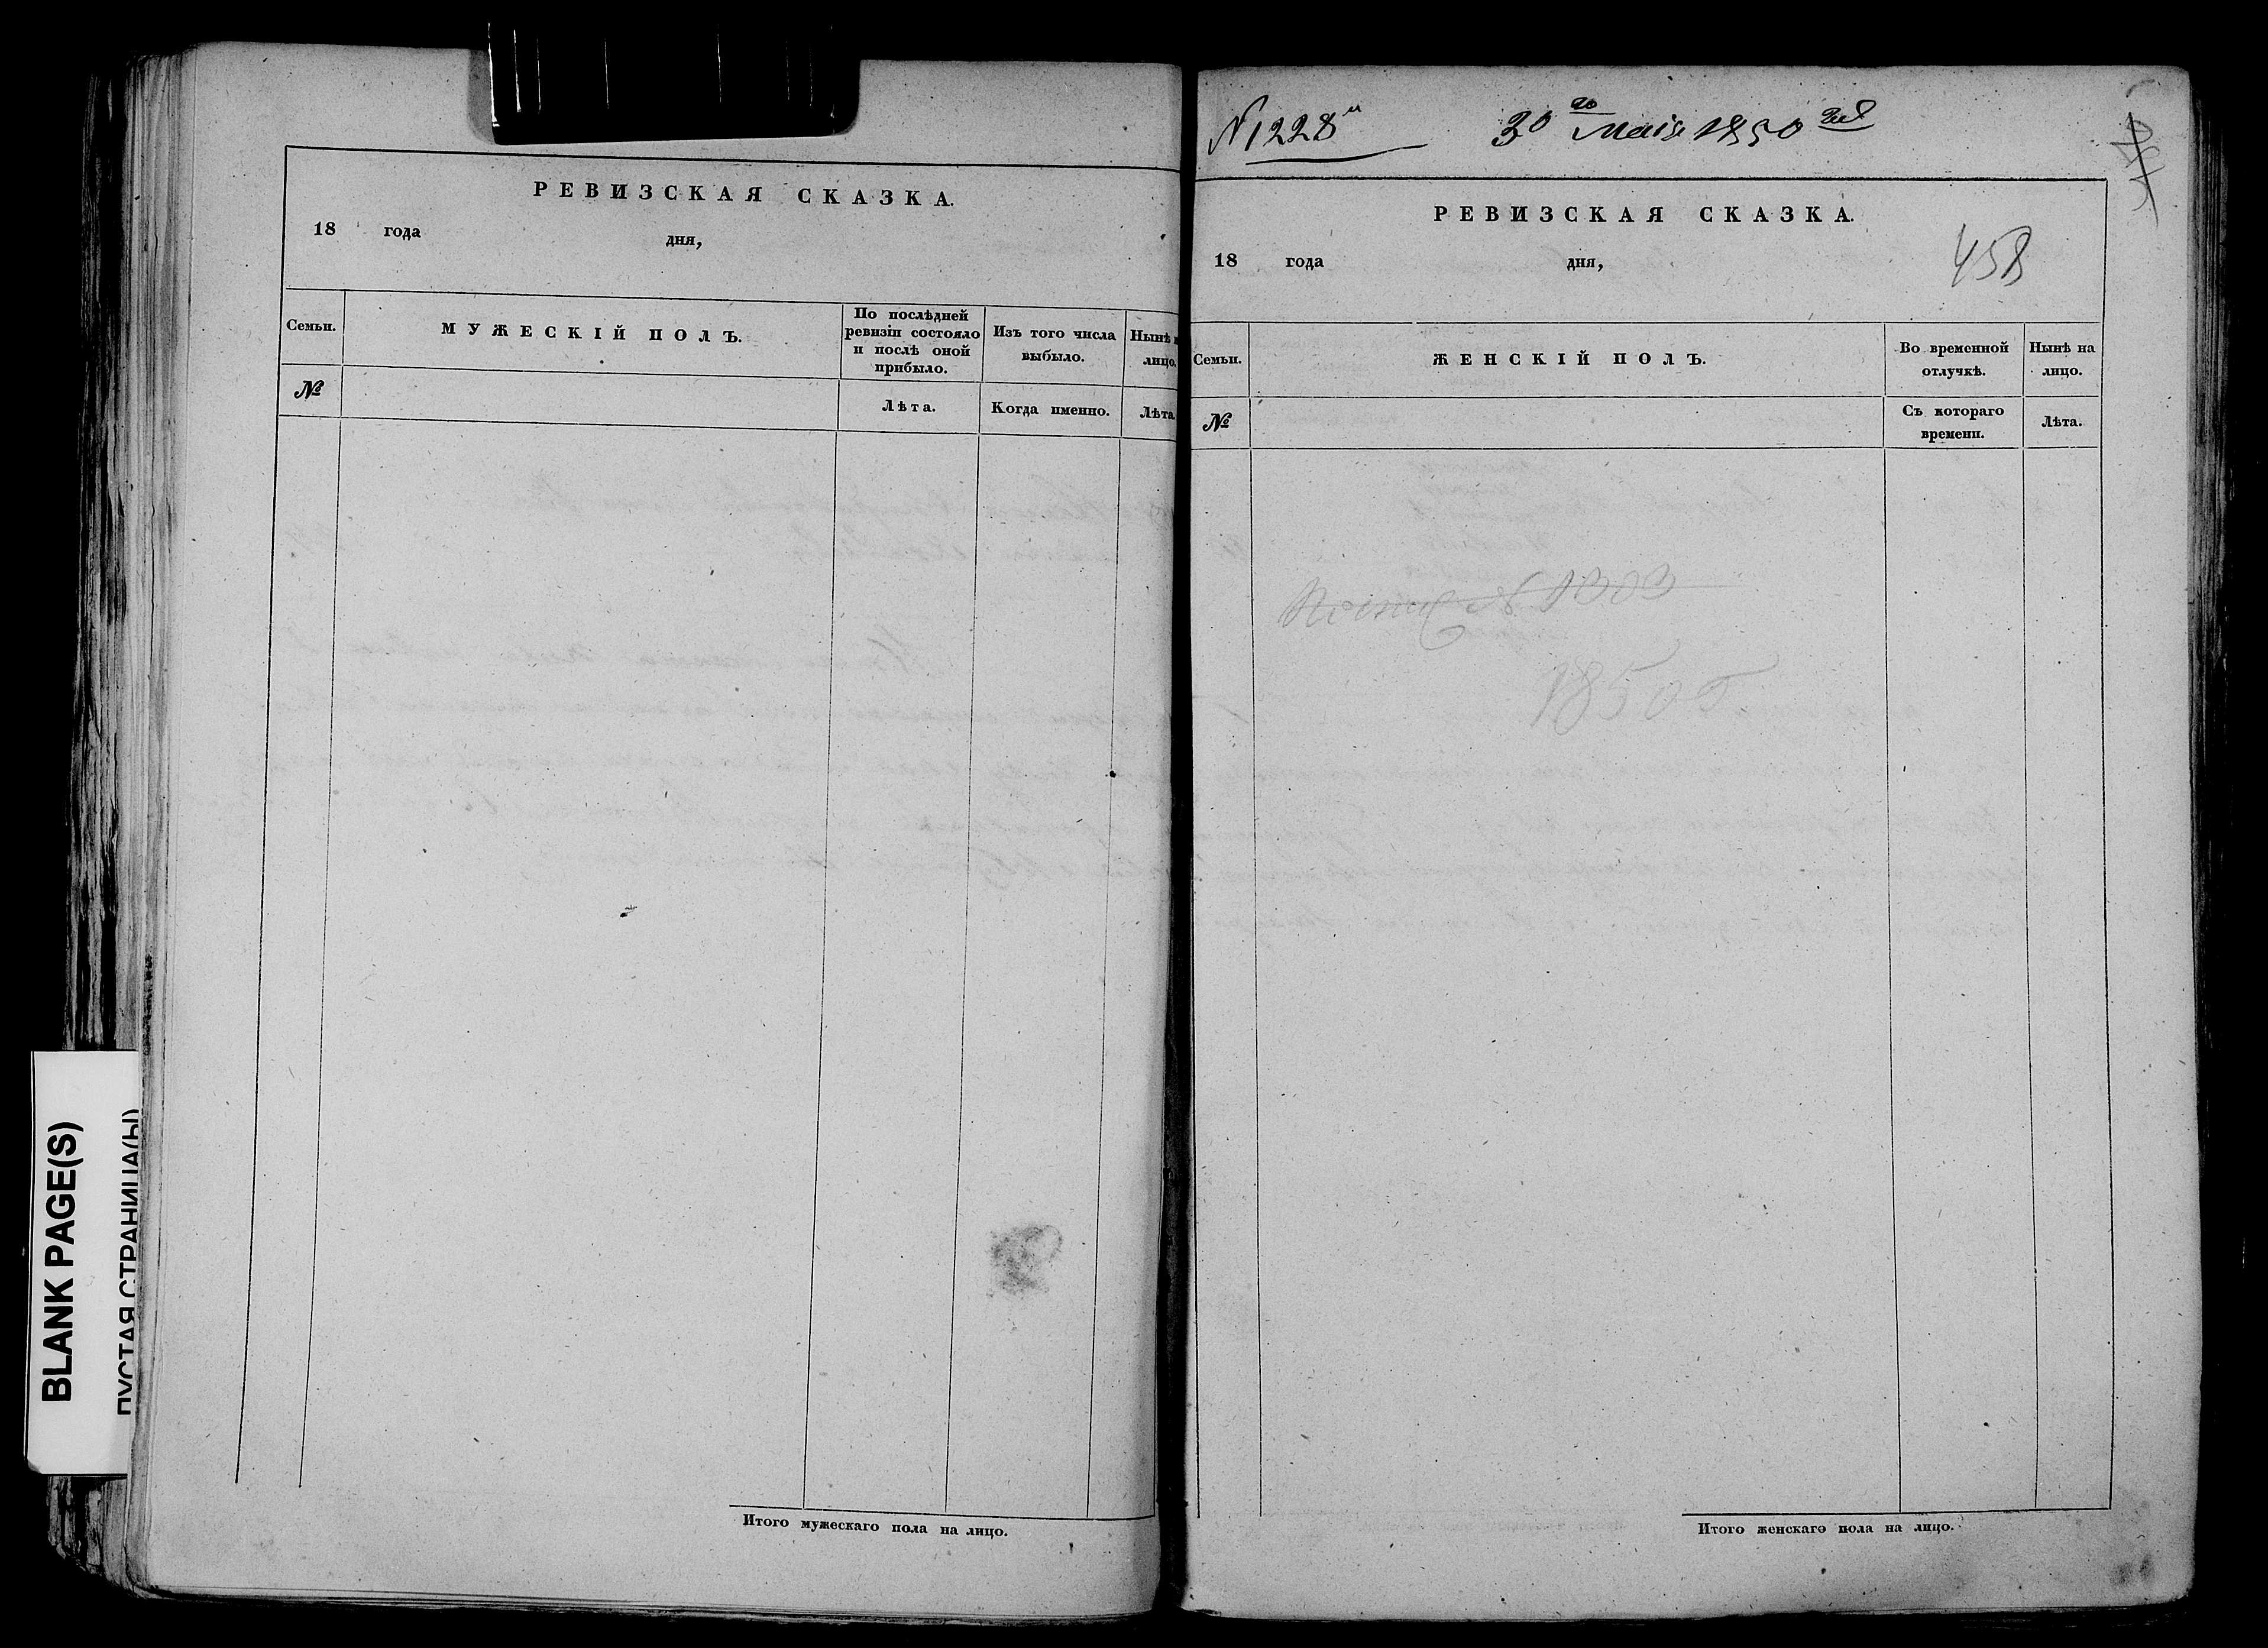 РЕВИЗСКАЯ СКАЗКА.
18 года дня,
Семьи.
МУЖЕСКІЙ ПОЛЪ.
По послѣдней
ревизіи состояло
и послѣ оной
прибыло.
Изъ того числа
выбыло.
Нынѣ
лицо.
№
Лѣта.
Когда именно.
Лѣта
Итого мужескаго пола на лицо.
BLANK PAGE(S)
ПУСТАЯ СТРАНИЦА(Ы)
N 1228
30го Маія 1850
РЕВИЗСКАЯ СКАЗКА.
18 года дня,
458
Семьи.
ЖЕНСКІЙ ПОЛЪ.
Во временной
отлучкѣ.
Нынѣ на
лицо.
№
Съ котораго
времени.
Лѣта.
N 1303
1850
Итого женскаго пола на лицо.